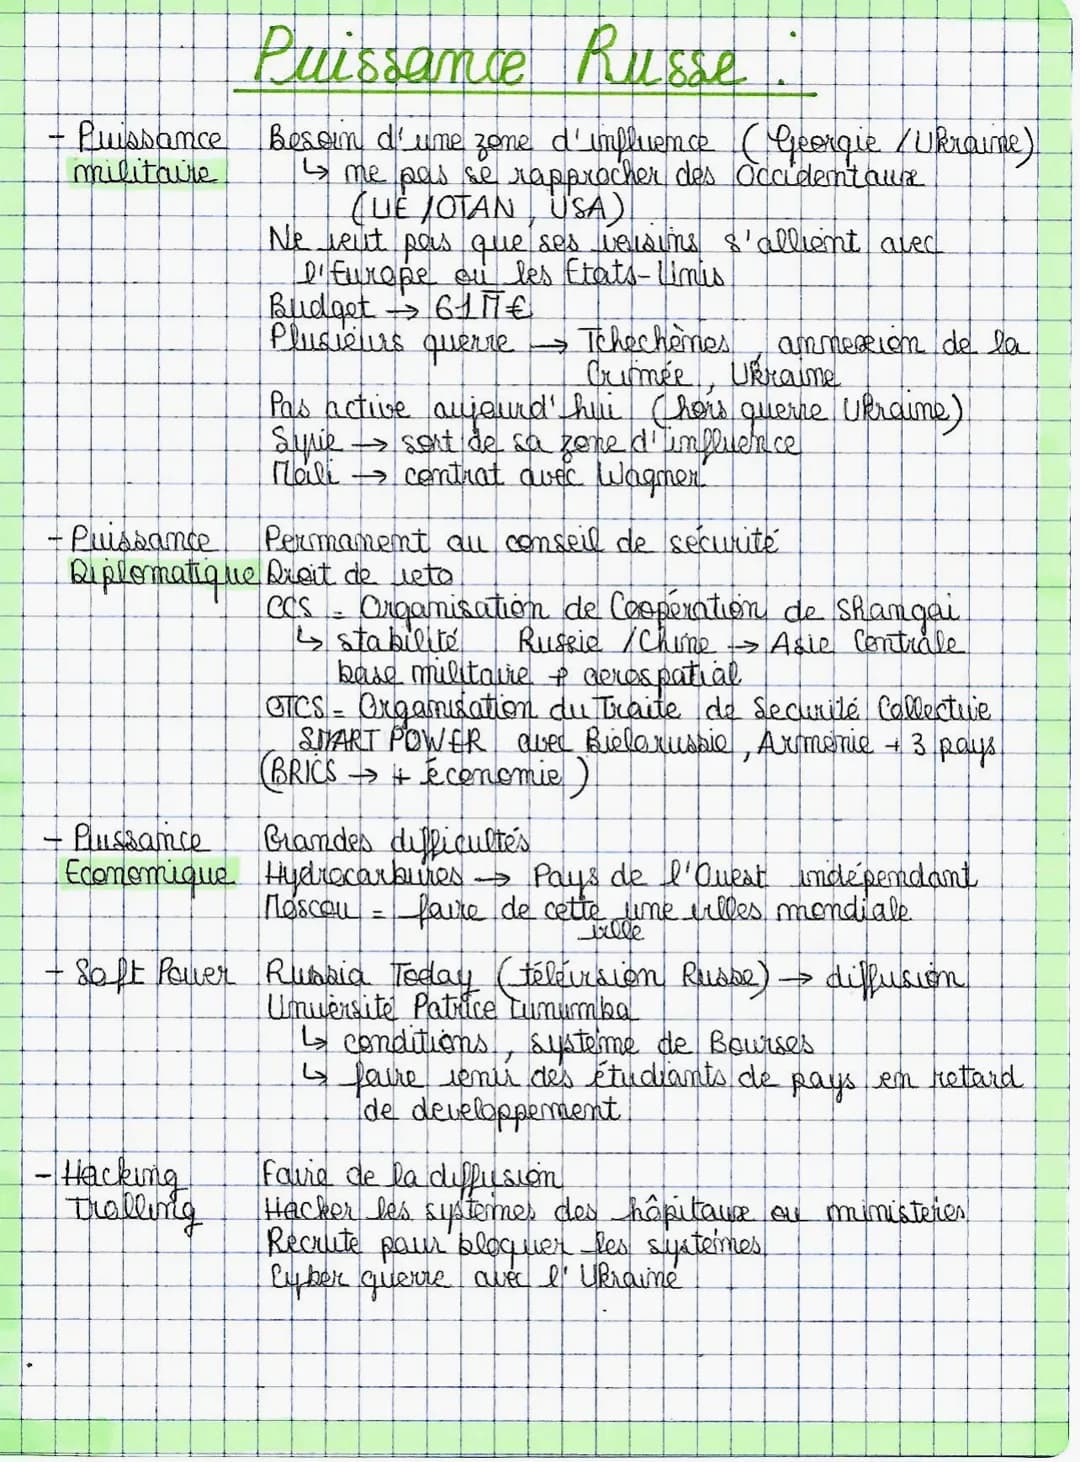 Puissance Russe :
- Puissance militaire
Besoin d'une zone d'influence (Georgie / Ukraine)
↳ ne pas se rapprocher des Occidentaux
(UE / OTAN, USA)
Ne veut pas que ses voisins s'allient avec
l'Europe ou les Etats-Unis
Budget → 61 M €
Plusieurs guerre → Tchechènes, annexion de la
Crimée, Ukraine
Pas active aujourd'hui (hors guerre Ukraine)
Syrie → sort de sa zone d'influence
Mali → contrat avec Wagner
- Puissance Diplomatique
Permanent au conseil de sécurité
Droit de veto
OCS = Organisation de Coopération de Shangai
↳ stabilité Russie / Chine → Asie Centrale
base militaire + aerospatial
OTCS = Organisation du Traite de Securité Collective
SMART POWER avec Bielorussie, Armenie + 3 pays
(BRICS → + économie)
- Puissance Economique
Grandes difficultés
Hydrocarbures → Pays de l'Ouest indépendant
Moscou = faire de cette ville une villes mondiale
- Soft Power
Russia Today (télévision Russe) → diffusion
Université Patrice Lumumba
↳ conditions, système de Bourses
↳ faire venir des étudiants de pays en retard
de developpement
- Hacking Trolling
Faire de la diffusion
Hacker les systèmes des hôpitaux ou ministeres
Recrute pour bloquer les systèmes
Cyber guerre avec l'Ukraine